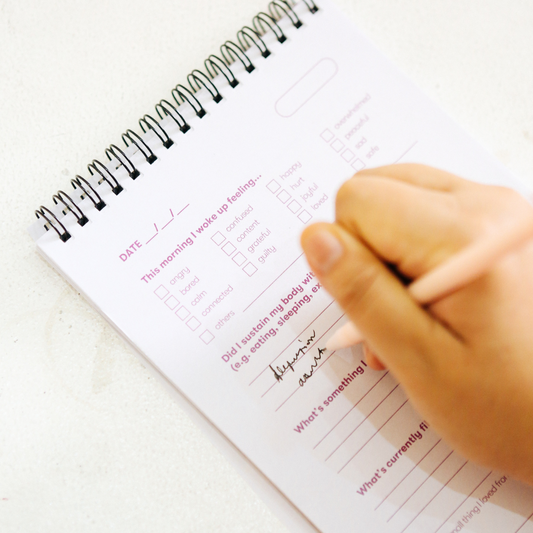 DATE __/__/__
This morning I woke up feeling...
angry
bored
calm
connected
others
confused
content
grateful
guilty
happy
hurt
joyful
loved
overwhelmed
peaceful
sad
safe
Did I sustain my body with
(e.g. eating, sleeping, ex
What's something I
What's currently fi
small thing I loved from